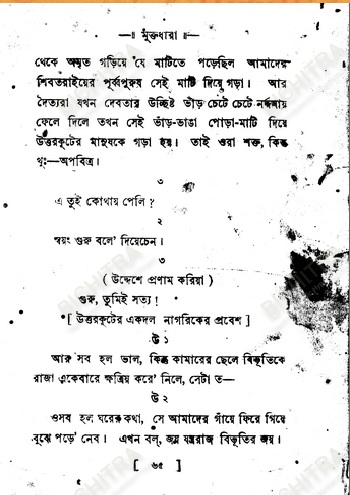 —॥ মুক্তধারা ॥—
থেকে অমৃত গড়িয়ে যে মাটিতে পড়েছিল আমাদের
শিবতরাইয়ের পূর্ব্বপুরুষ সেই মাটি দিয়ে গড়া। আর
দৈত্যরা যখন দেবতার উচ্ছিষ্ট ভাঁড় চেটে চেটে নর্দ্দমায়
ফেলে দিলে তখন সেই ভাঁড়-ভাঙা পোড়া-মাটি দিয়ে
উত্তরকূটের মানুষকে গড়া হয়। তাই ওরা শক্ত, কিন্তু
থুঃ—অপবিত্র।
৩
এ তুই কোথায় পেলি ?
২
স্বয়ং গুরু বলে' দিয়েচেন।
৩
( উদ্দেশে প্রণাম করিয়া )
গুরু, তুমিই সত্য !
[ উত্তরকূটের একদল নাগরিকের প্রবেশ ]
উ ১
আর সব হল ভাল, কিন্তু কামারের ছেলে বিভূতিকে
রাজা একেবারে ক্ষত্রিয় করে' নিলে, সেটা ত—
উ ২
ওসব হল ঘরের কথা, সে আমাদের গাঁয়ে ফিরে গিয়ে
বুঝে পড়ে' নেব। এখন বল্, জয় যন্ত্ররাজ বিভূতির জয়।
[ ৬৫ ]
BICHITRA